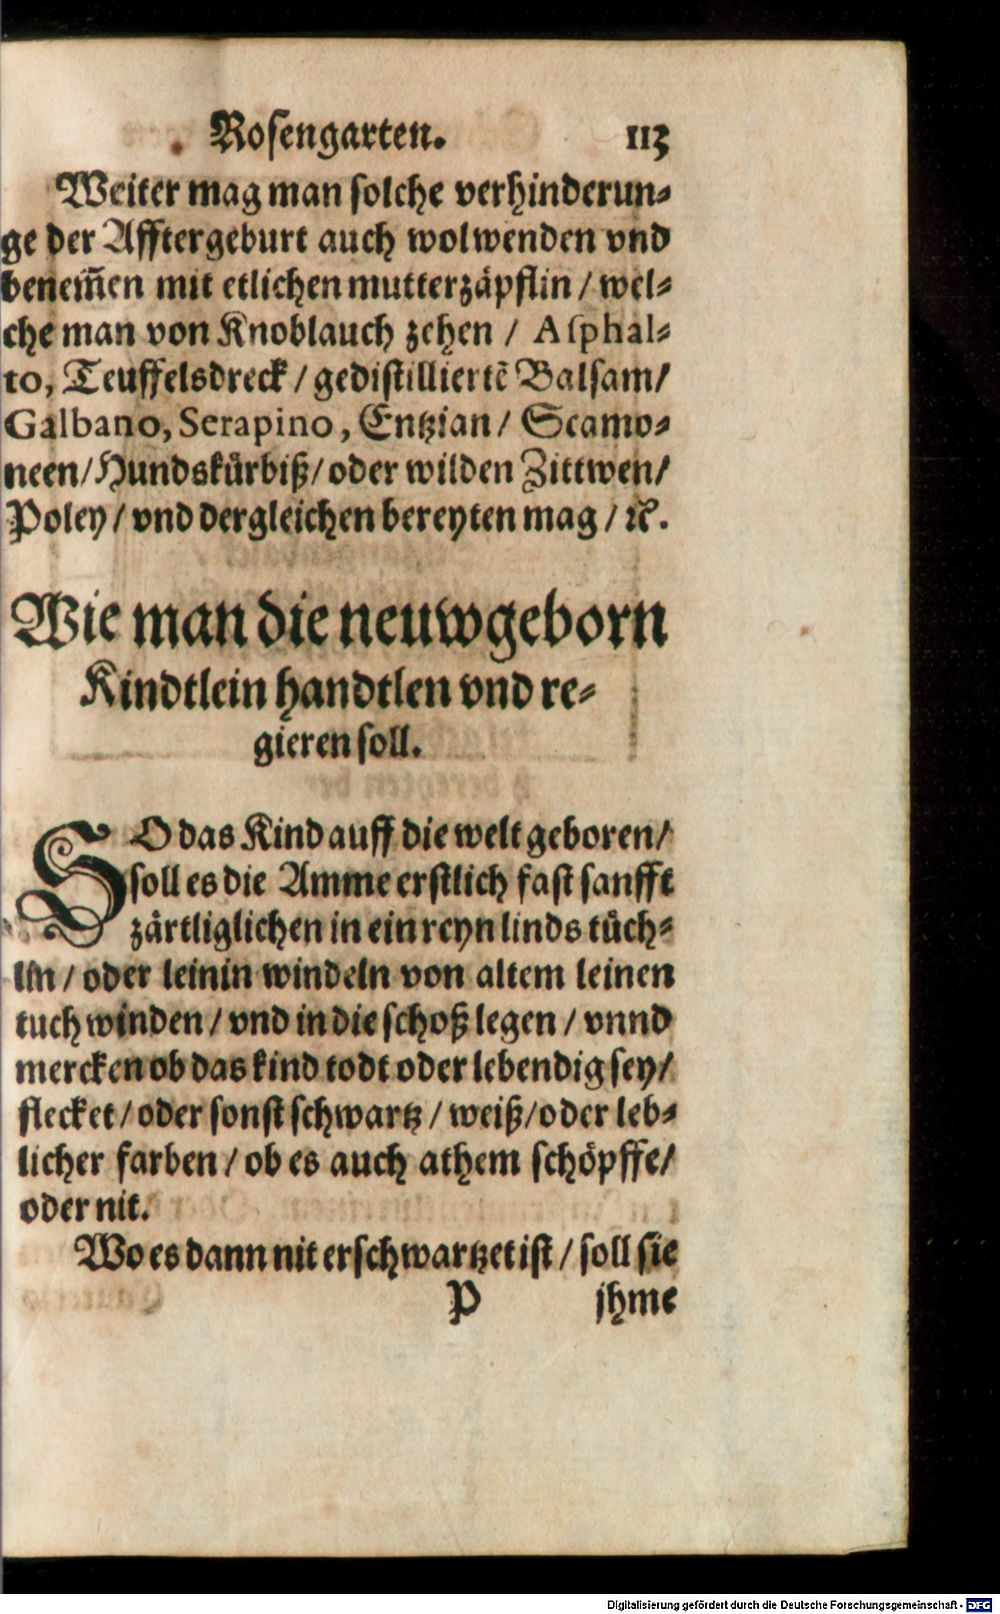 Rosengarten. 113
Weiter mag man solche verhinderun⸗
ge der Afftergeburt auch wol wenden vnd
benem̃en mit etlichen mutterzäpflin / wel⸗
che man von Knoblauch zehen / Asphal⸗
to, Teuffelsdreck / gedistilliertẽ Balsam /
Galbano, Serapino, Entzian / Scamo⸗
neen / Hundskürbiß / oder wilden Zittwen /
Poley / vnd dergleichen bereyten mag / ꝛc.
Wie man die neuwgeborn
Kindtlein handtlen vnd re⸗
gieren soll.
SO das Kind auff die welt geboren /
soll es die Amme erstlich fast sanfft
zärtliglichen in ein reyn linds tüch⸗
lin / oder leinin windeln von altem leinen
tuch winden / vnd in die schoß legen / vnnd
mercken ob das kind todt oder lebendig sey /
flecket / oder sonst schwartz / weiß / oder leb⸗
licher farben / ob es auch athem schöpffe /
oder nit.
Wo es dann nit erschwartzet ist / soll sie
P jhme
Digitalisierung gefördert durch die Deutsche Forschungsgemeinschaft - DFG